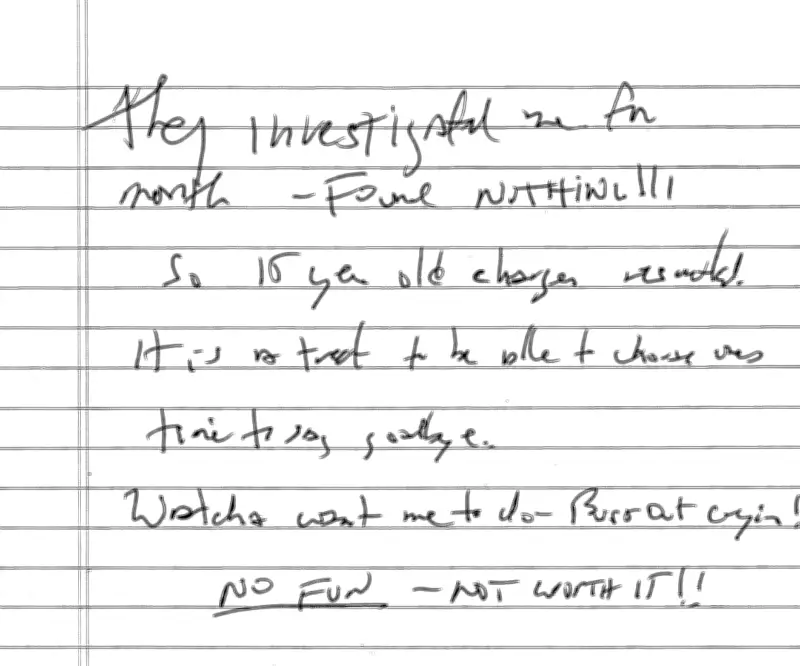 They investigated me for
month - Found NOTHING!!!
So 15 year old charges resulted!
It is a treat to be able to choose ones
time to say goodbye.
Watcha want me to do - Burst out cryin!
NO FUN - NOT WORTH IT!!